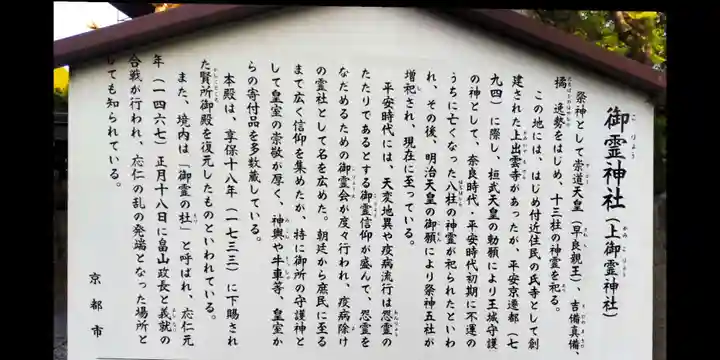 御霊神社（上御霊神社）
祭神として崇道天皇（早良親王）、吉備真備、
橘逸勢をはじめ、十三柱の神霊を祀る。
この地には、はじめ付近住民の氏寺として創
建された上出雲寺があったが、平安京遷都（七
九四）に際し、桓武天皇の勅願により王城守護
の神として、奈良時代・平安時代初期に不運の
うちに亡くなった八柱の神霊が祀られたといわ
れ、その後、明治天皇の御願により祭神五社が
増祀され、現在に至っている。
平安時代には、天変地異や疫病流行は怨霊の
たたりであるとする御霊信仰が盛んで、怨霊を
なだめるための御霊会が度々行われ、疫病除け
の霊社として名を広めた。朝廷から庶民に至る
まで広く信仰を集めたが、特に御所の守護神と
して皇室の崇敬が厚く、神輿や牛車等、皇室か
らの寄付品を多数蔵している。
本殿は、享保十八年（一七三三）に下賜され
た賢所御殿を復元したものといわれている。
また、境内は「御霊の杜」と呼ばれ、応仁元
年（一四六七）正月十八日に畠山政長と義就の
合戦が行われ、応仁の乱の発端となった場所と
しても知られている。
京都市